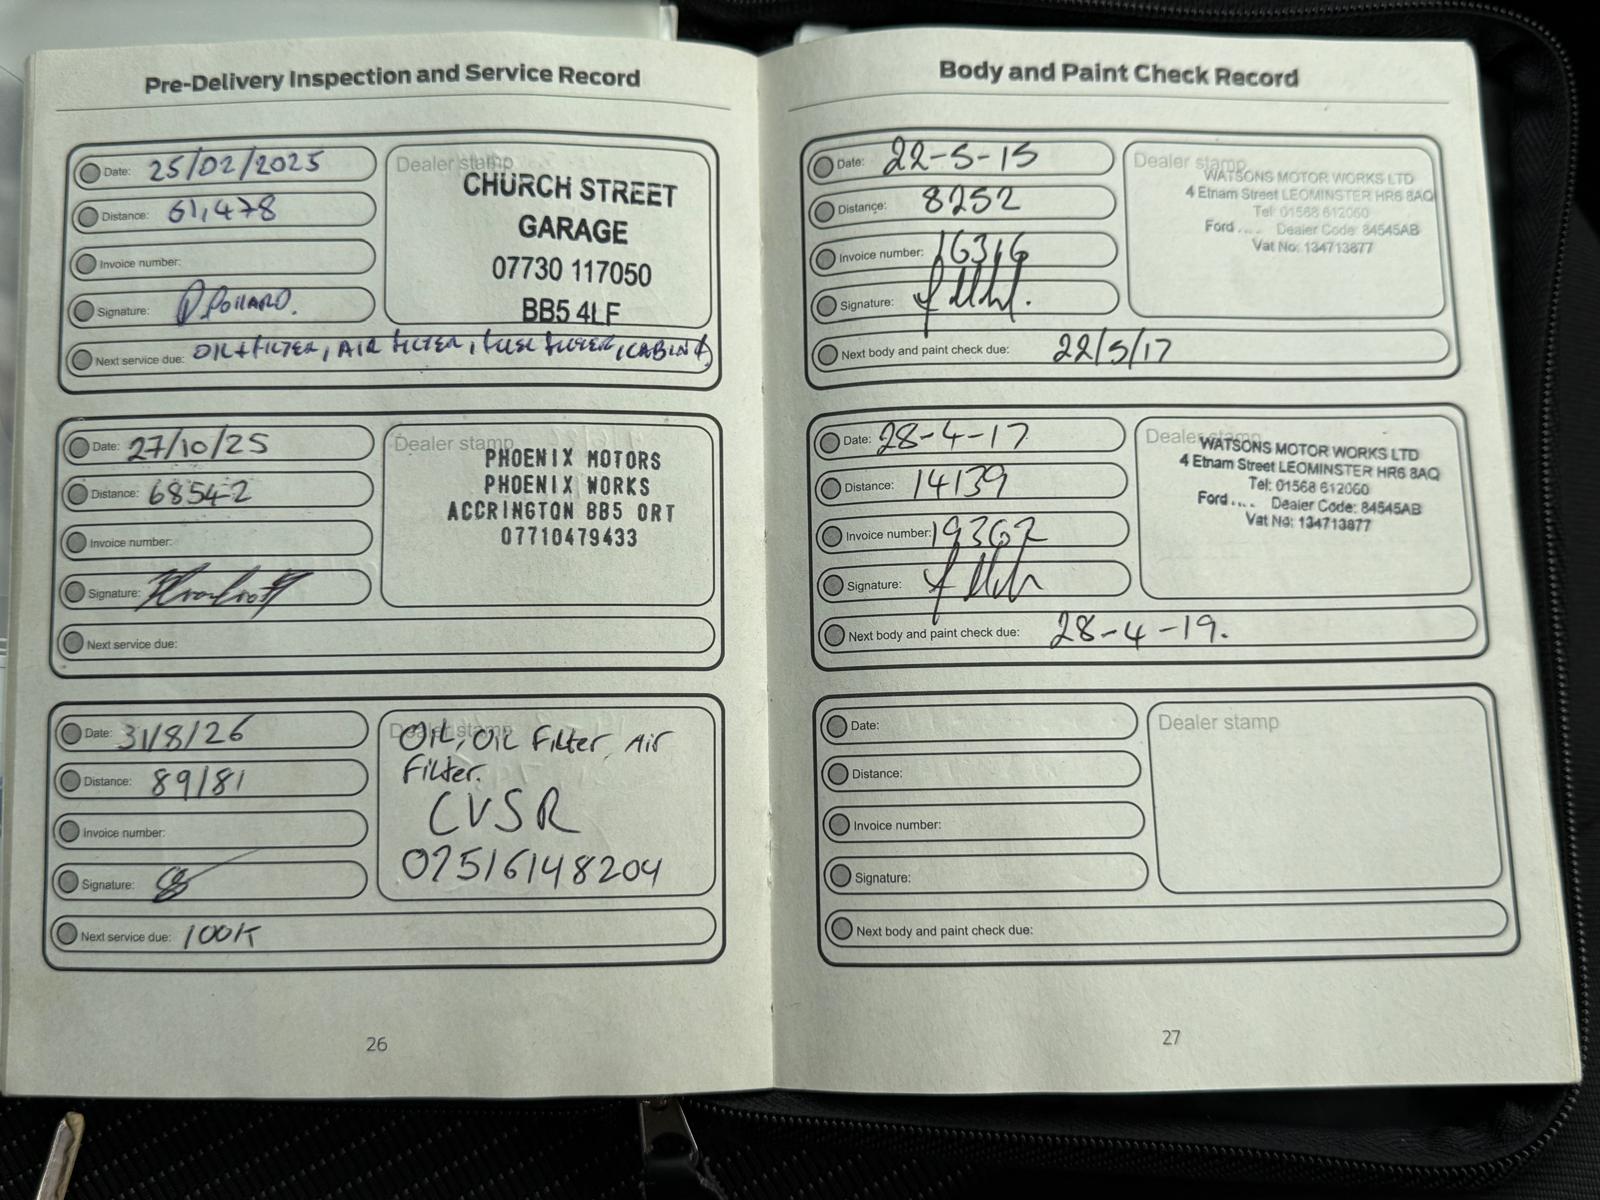 Pre-Delivery Inspection and Service Record
Date: 25/02/2025
Distance: 61,478
Invoice number:
Signature: P. Pollard.
Next service due: OIL + FILTER, AIR FILTER, FUEL FILTER, CABIN F
Dealer stamp
CHURCH STREET
GARAGE
07730 117050
BB5 4LF
Date: 27/10/25
Distance: 68542
Invoice number:
Signature:
Next service due:
Dealer stamp
PHOENIX MOTORS
PHOENIX WORKS
ACCRINGTON BB5 0RT
07710479433
Date: 31/8/26
Distance: 89181
Invoice number:
Signature:
Next service due: 100K
Dealer stamp
OIL, OIL Filter, Air
Filter.
CVSR
07516148204
26
Body and Paint Check Record
Date: 22-5-15
Distance: 8252
Invoice number: 16316
Signature:
Next body and paint check due: 22/5/17
Dealer stamp
WATSONS MOTOR WORKS LTD
4 Etnam Street LEOMINSTER HR6 8AQ
Tel: 01568 612060
Ford .... Dealer Code: 84545AB
Vat No: 134713877
Date: 28-4-17
Distance: 14139
Invoice number: 19367
Signature:
Next body and paint check due: 28-4-19.
Dealer stamp
WATSONS MOTOR WORKS LTD
4 Etnam Street LEOMINSTER HR6 8AQ
Tel: 01568 612060
Ford .... Dealer Code: 84545AB
Vat No: 134713877
Date:
Distance:
Invoice number:
Signature:
Next body and paint check due:
Dealer stamp
27